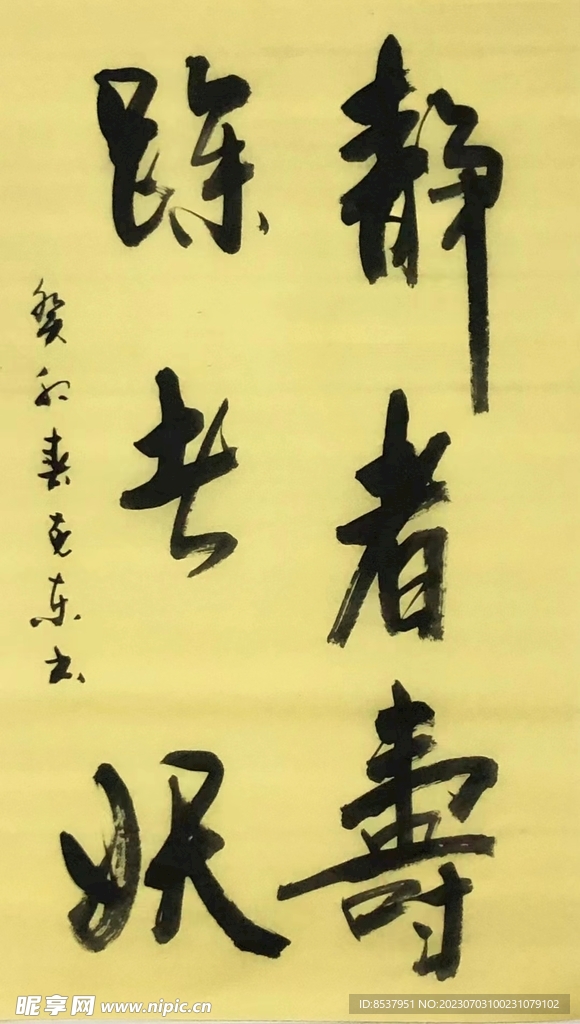 静者壽
躁者妖
癸卯春克东书
昵享网 www.nipic.cn
ID:8537951 NO:20230703100231079102